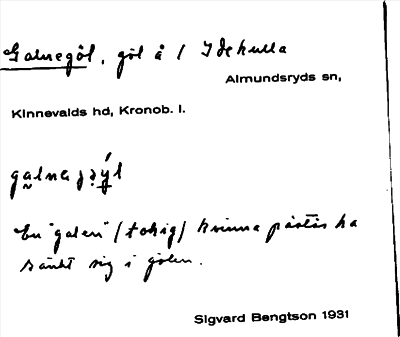 Galnegöl, göl å 1 Idekulla
Almundsryds sn,
Kinnevalds hd, Kronob. l.
En "galen" (tokig) kvinna påstås ha
sänkt sig i gölen.
Sigvard Bengtson 1931